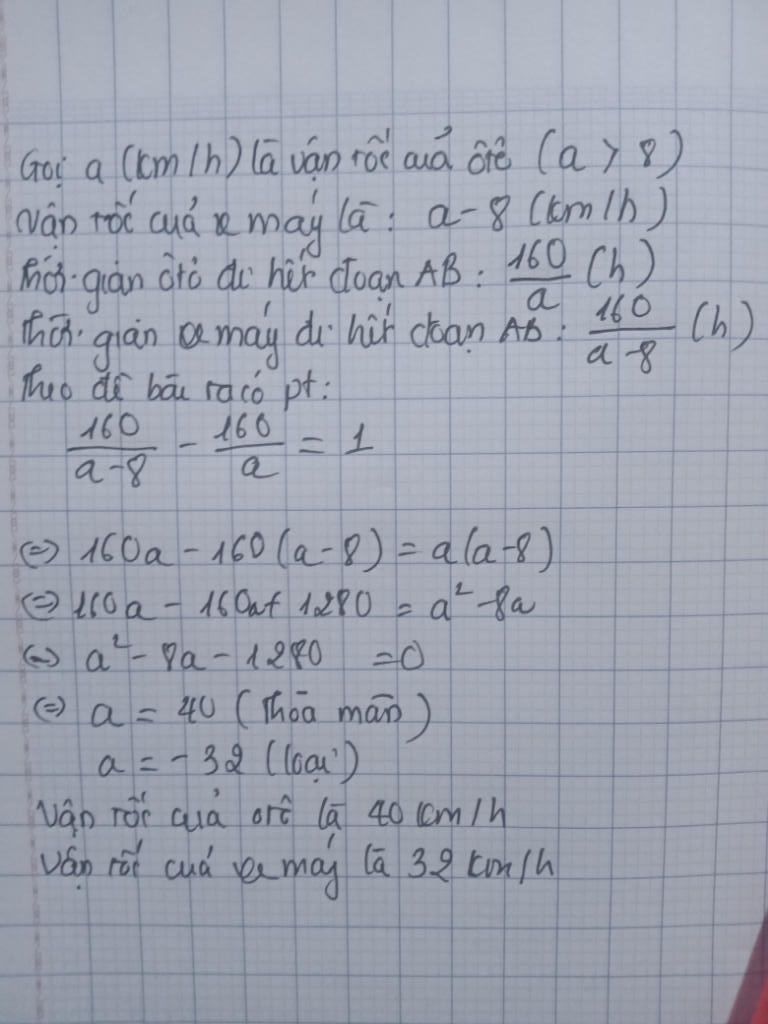 Gọi a (km/h) là vận tốc của ôtô (a > 8)
Vận tốc của xe máy là: a - 8 (km/h)
Thời gian ôtô đi hết đoạn AB: 160/a (h)
Thời gian xe máy đi hết đoạn AB: 160/(a-8) (h)
Theo đề bài ra có pt:
160/(a-8) - 160/a = 1
⇔ 160a - 160(a-8) = a(a-8)
⇔ 160a - 160a + 1280 = a² - 8a
⇔ a² - 8a - 1280 = 0
⇔ a = 40 (Thỏa mãn)
a = -32 (loại)
Vận tốc của ôtô là 40 km/h
Vận tốc của xe máy là 32 km/h